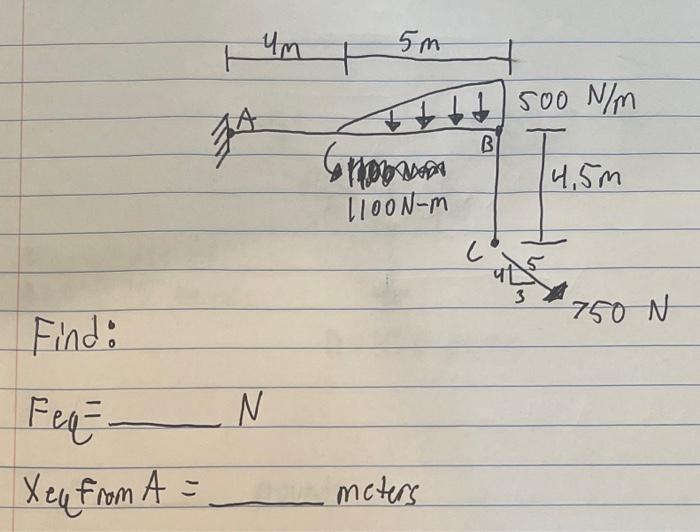 4m 5m
500 N/m
A
B
4,5m
1100N-m
C
4 5
3
750 N
Find:
Feq=______ N
Xeq from A = ______ meters